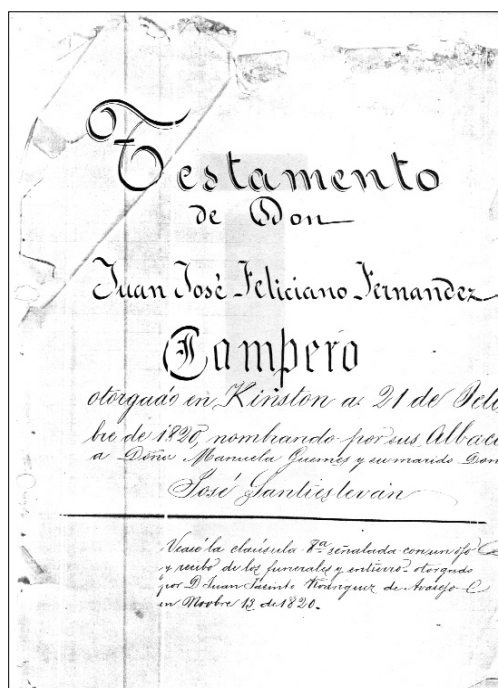 Testamento
de Don
Juan José Feliciano Fernandez
Campero
otorgado en Kinston a 21 de Octu
bre de 1820, nombrando por sus Albace
a Doña Manuela Guemes y su marido Don
José Santiestevan
Vease la clausula 8ª señalada con un ojo
y recibo de los funerales y entierro otorgado
por D. Juan Jacinto Rodriguez de
en Novbre 13 de 1820.